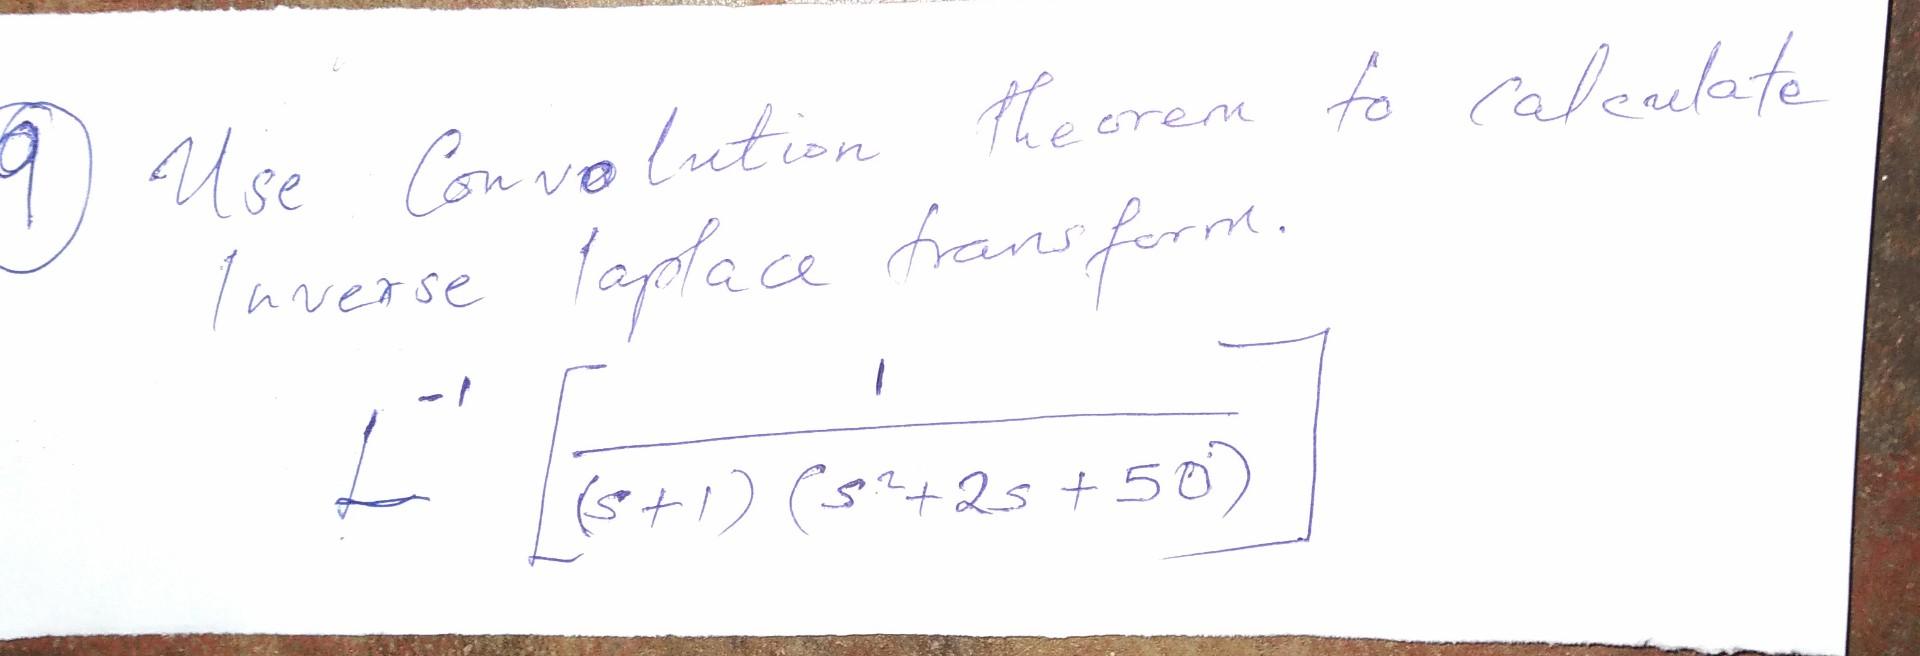 9 Use Convolution theorem to calculate
Inverse laplace transform.
L⁻¹ [ 1 / (s+1) (s²+2s+50) ]